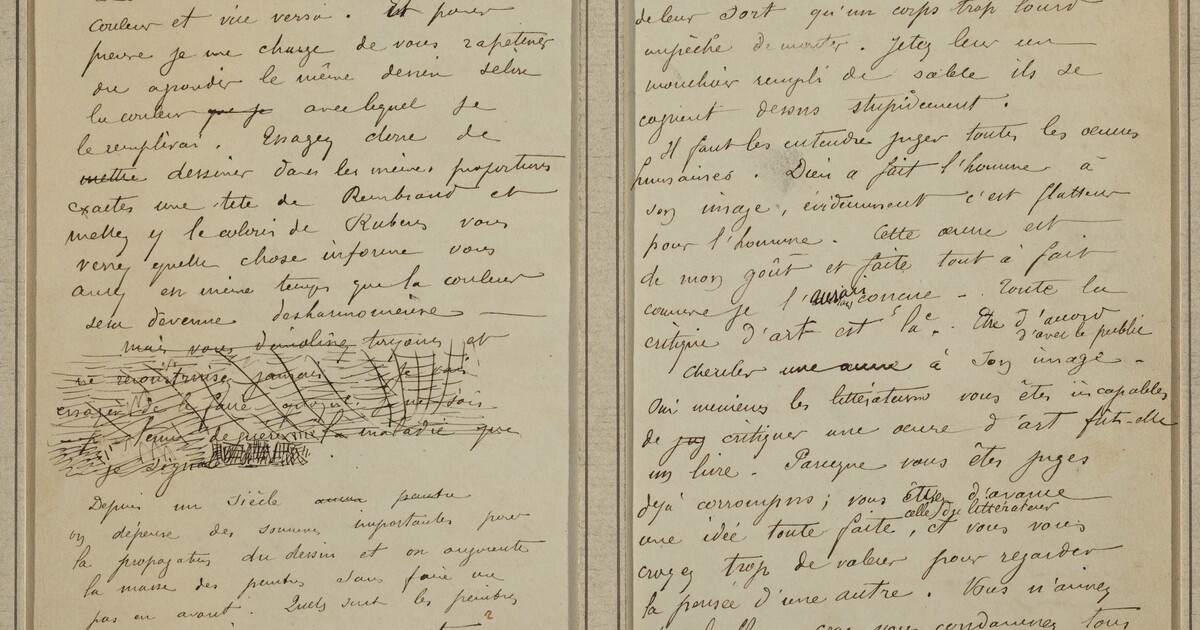 couleur et vice versa. Et pour
preuve je me charge de vous rapetisser
ou agrandir le même dessin selon
la couleur que je avec lequel je
le remplirai. Essayez donc de
mettre dessiner dans les mêmes proportions
exactes une tête de Rembrand et
mettez y le coloris de Rubens vous
verrez quelle chose informe vous
aurez en même temps que la couleur
sera devenue desharmonieuse —
mais vous démolissez toujours et
ne reconstruisez jamais. Je vais
essayer de le faire quoique je ne sois
de guérir la maladie que
je signale
Depuis un siècle peintre
on dépense des sommes importantes pour
la propagation du dessin et on augmente
la masse des peintres sans faire un
pas en avant. Quels sont les peintres
?
de leur sort qu'un corps trop lourd
empêche de monter. Jetez leur un
mouchoir rempli de sable ils se
cognent dessus stupidement.
Il faut les entendre juger toutes les œuvres
humaines. Dieu a fait l'homme à
son image, évidemment c'est flatteur
pour l'homme. Cette œuvre est
de mon goût et faite tout à fait
comme je l' concue -. Toute la
critique d'art est là. Etre d'accord
d'avec le public
chercher une œuvre à son image -
Oui messieurs les littérateurs vous êtes incapables
de jug critiquer une œuvre d'art fût-elle
un livre. Parceque vous êtes juges
déjà corrompus; vous d'avance
celle du littérateur
une idée toute faite, et vous vous
croyez trop de valeur pour regarder
la pensée d'une autre. Vous n'aimez
vous condamnez tous